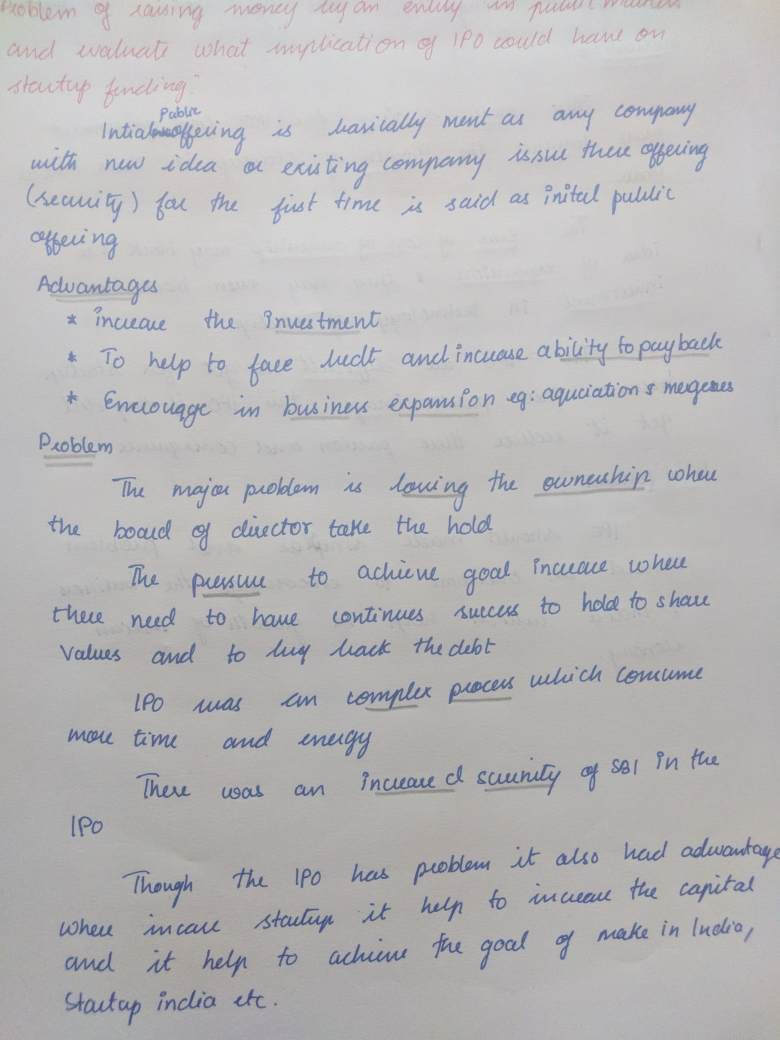 Problem of raising money by an entity in public markets
and evaluate what implication of IPO could have on
startup funding."
Public
Intial offering is basically ment as any company
with new idea or existing company issue there offering
(security) for the first time is said as inital public
offering
Advantages
* increase the investment
* To help to face debt and increase ability to pay back
* Encrouqge in business expansion eg: aquciation & mergeres
Problem
The major problem is loving the ownership where
the board of director take the hold
The pressure to achieve goal increase where
there need to have continues success to hold to share
values and to buy back the debt
IPO was an complex process which consume
more time and energy
There was an increased scrunity of SBI in the
IPO
Though the IPO has problem it also had advantage
where incase startup it help to increase the capital
and it help to achieve the goal of make in India,
Startup india etc.